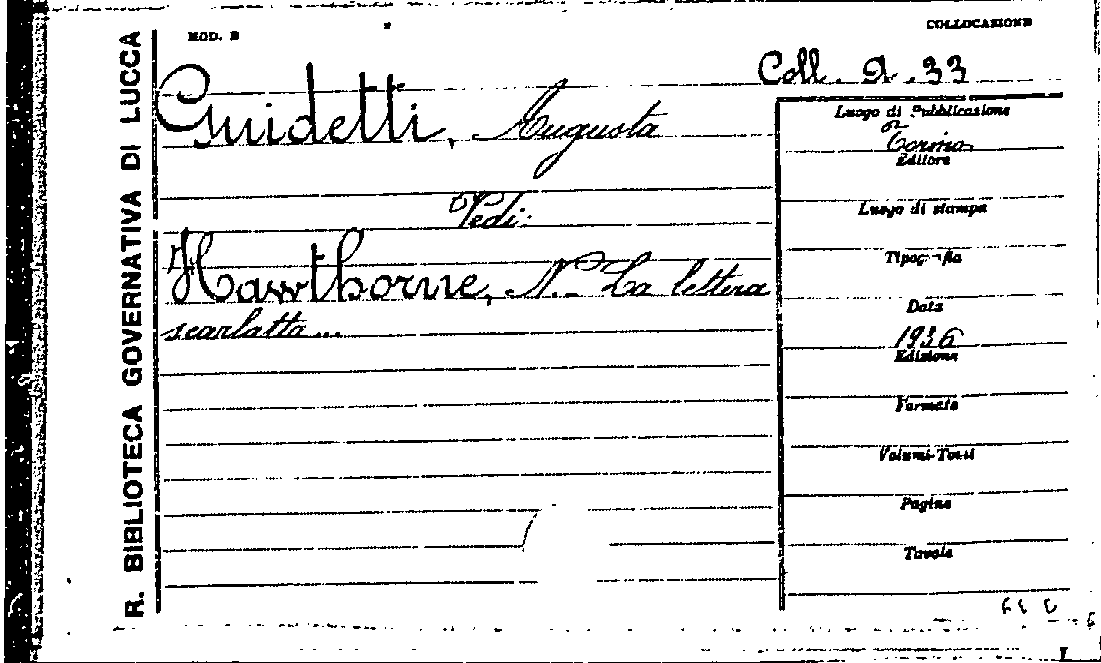 MOD. B
COLLOCAZIONE
R. BIBLIOTECA GOVERNATIVA DI LUCCA
Coll. A. 33
Guidetti, Augusta
Vedi:
Hawthorne, N. - La lettera
scarlatta...
Luogo di Pubblicazione
Torino
Editore
Luogo di stampa
Tipografia
Data
1936
Edizione
Formato
Volumi-Tomi
Pagine
Tavole